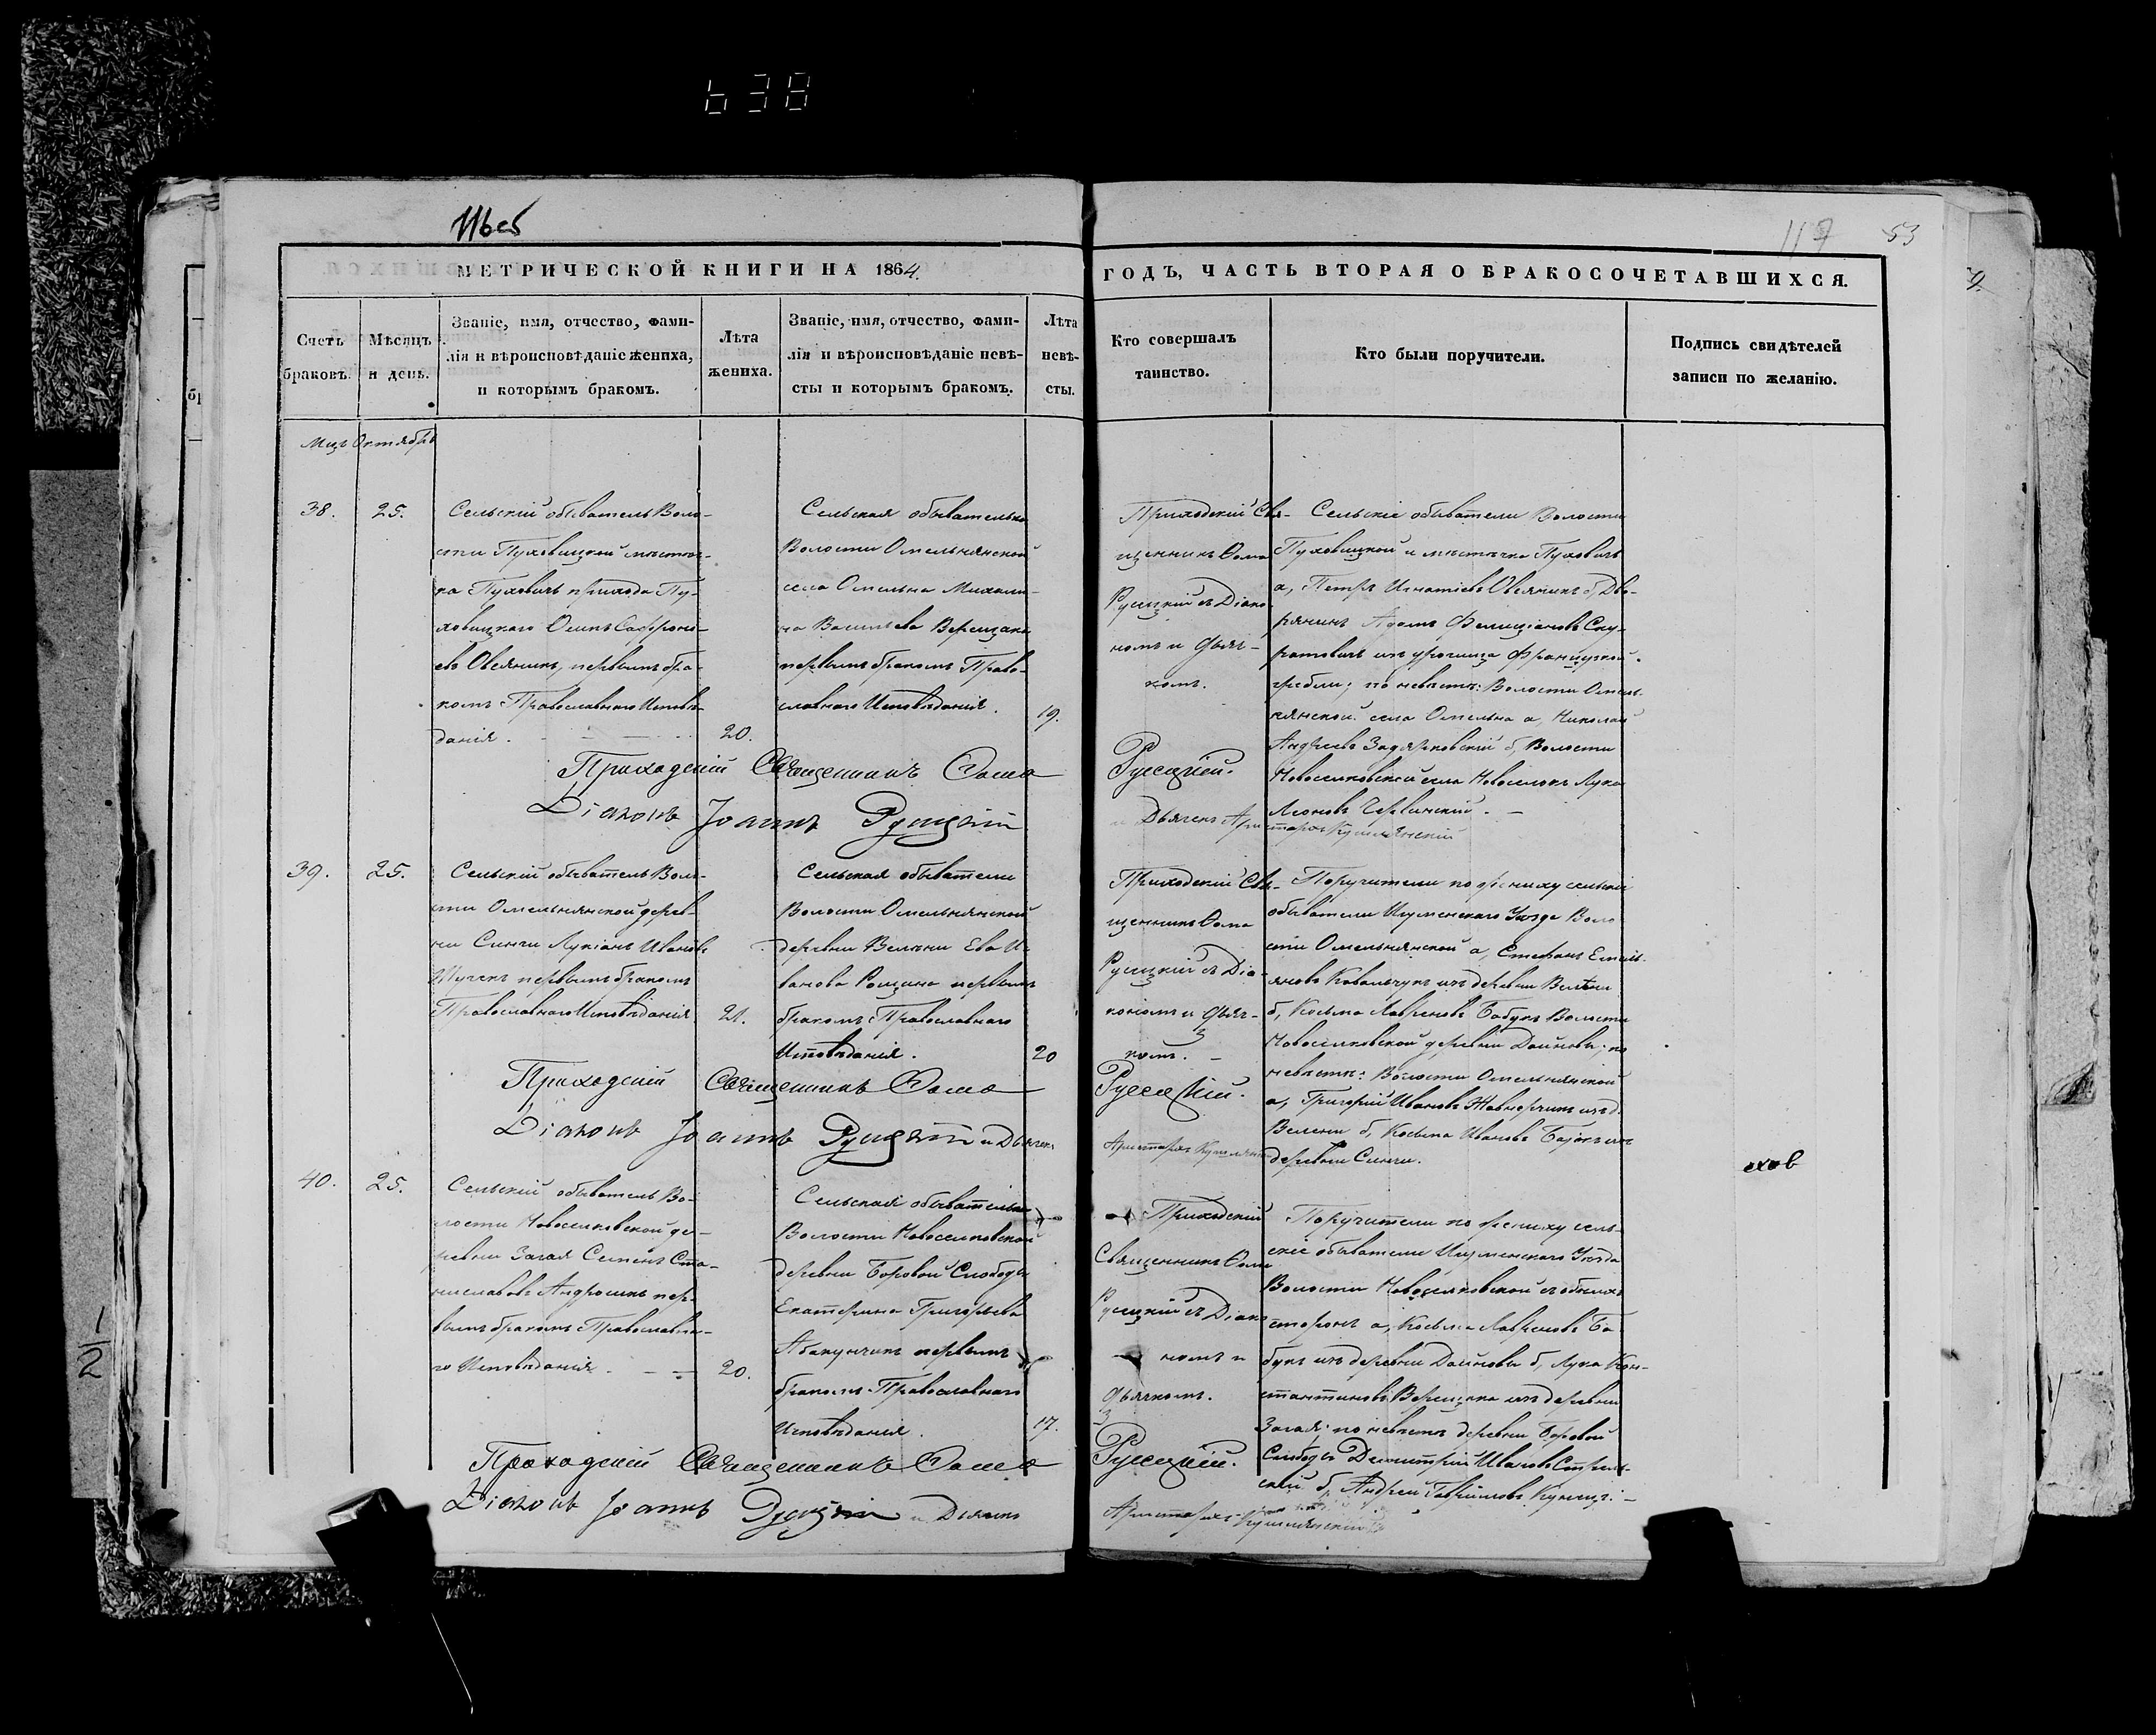 638
116об
117 53
МЕТРИЧЕСКОЙ КНИГИ НА 1864.
ГОДЪ, ЧАСТЬ ВТОРАЯ О БРАКОСОЧЕТАВШИХСЯ.
Счетъ
браковъ.
Мѣсяцъ
и день.
Званіе, имя, отчество, фами-
лія и вѣроисповѣданіе жениха,
и которымъ бракомъ.
Лѣта
жениха.
Званіе, имя, отчество, фами-
лія и вѣроисповѣданіе невѣ-
сты и которымъ бракомъ.
Лѣта
невѣ-
сты.
Кто совершалъ
таинство.
Кто были поручители.
Подпись свидѣтелей
записи по желанію.
Мцъ Октябрь
38.
25.
Сельскій обыватель Воло-
сти Пуховицкой мѣстеч-
ка Пуховичъ прихода Пу-
ховицкаго Осипъ Саффроно-
въ Овсяникъ, первымъ бра-
комъ Православнаго Исповѣ-
данія.
20.
Сельская обывателька
Волости Омельнянской
села Омельна Михали-
на Васильева Верещака
первымъ бракомъ Право-
славнаго Исповѣданія.
19.
Приходскій Свя-
щенникъ Ѳома
Русецкій съ Діако-
номъ и дьяч-
комъ.
Сельскіе обыватели Волости
Пуховицкой и мѣстечка Пуховичъ
а, Петръ Игнатіевъ Овсяникъ б, Дво-
рянинъ Адамъ Фелиціановъ Ску-
ратовичъ изъ урочища Французкой
гребли; по невѣстѣ: Волости Омель-
нянской села Омельна а, Николай
Андреевъ Задярковскій б, Волости
Новоселковской села Новоселокъ Лука
Леоновъ Червинскій. —
Приходскій Священникъ Ѳома Русецкій.
Діаконъ Іоаннъ Русецкій и Дьячекъ Аристархъ Кушлянскій
39.
25.
Сельскій обыватель Воло-
сти Омельнянской дерев-
ни Синчи Лукіанъ Ивановъ
первымъ бракомъ
Православнаго Исповѣданія
21.
Сельская обыватели
Волости Омельнянской
деревни Велѣни Ева И-
ванова Рощина первымъ
бракомъ Православнаго
Исповѣданія.
20
Приходскій Свя-
щенникъ Ѳома
Русецкій съ Діа-
кономъ и дьяч-
комъ. —
Поручители по жениху сельскіе
обыватели Игуменскаго Уѣзда Воло-
сти Омельнянской а, Стефанъ Емель-
яновъ Ковальчукъ изъ деревни Велѣни
б, Косьма Лавреновъ Бабукъ Волости
Новоселковской деревни Дайновы; по
невѣстѣ: Волости Омельнянской
а, Григорій Ивановъ Жавнерчикъ изъ д.
Велени б, Косьма Ивановъ изъ
деревни Синчи.
Приходскій Священникъ Ѳома Русецкій.
Діаконъ Іоаннъ Русецкій и Дьячекъ Аристархъ Кушлянскій
40.
25.
Сельскій обыватель Во-
лости Новоселковской де-
ревни Загая Семенъ Ста-
ниславовъ Андросикъ пер-
вымъ бракомъ Православна-
го Исповѣданія.
20.
Сельская обывателька
Волости Новоселковской
деревни Боровой Слободы
Екатерина Григорьева
Абакунчикъ первымъ
бракомъ Православнаго
Исповѣданія.
17.
Приходскій
Священникъ Ѳома
Русецкій съ Діако-
номъ и
дьячкомъ.
Поручители по жениху сель-
скіе обыватели Игуменскаго Уѣзда
Волости Новоселковской съ обоихъ
сторонъ а, Косьма Лавреновъ Ба-
букъ изъ деревни Дайновы б, Лука Кон-
стантиновъ Верещака изъ деревни
Загая; по невѣстѣ деревни Боровой
Слободы Димитрій Ивановъ Стрель-
скій б, Андрей Гавріиловъ Кунецъ. —
Приходскій Священникъ Ѳома Русецкій.
Діаконъ Іоаннъ Русецкій и Дьячекъ Аристархъ Кушлянскій
1/2